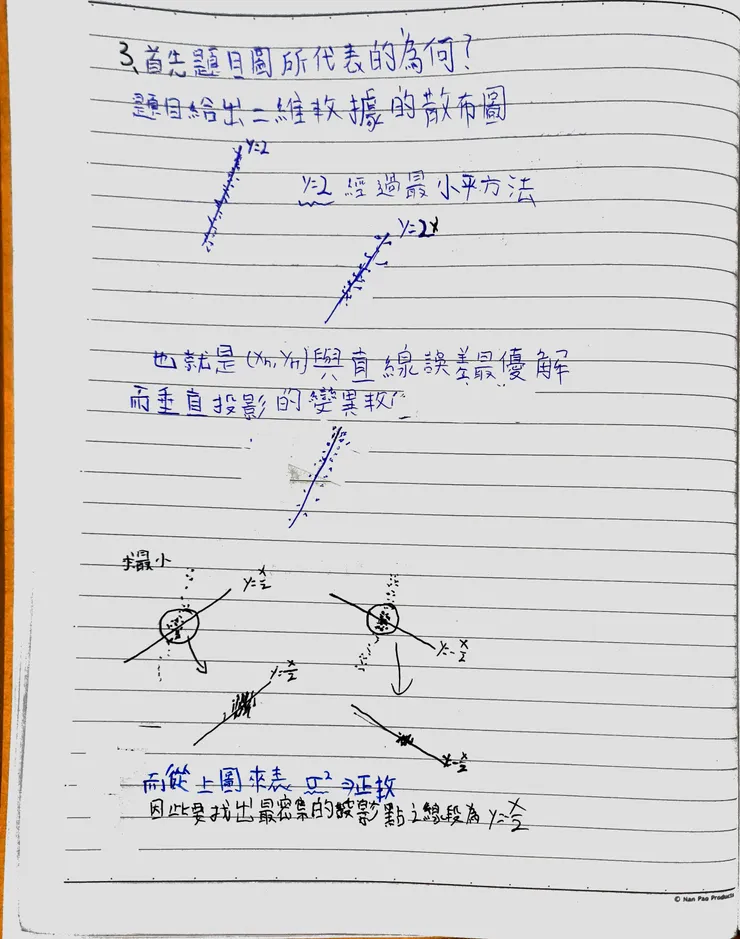 3、首先題目圖所代表的為何?
題目給出二維數據的散布圖
y=2
y=2 經過最小平方法
y=2x
也就是(xn, yn)與直線誤差最優解
而垂直投影的變異數
求最小
y=x/2
y=-x/2
y=x/2
y=-x/2
而從上圖來表 σ² ⇒正數
因此要找出最密集的投影點之線段為 y=-x/2
© Nan Pao Products